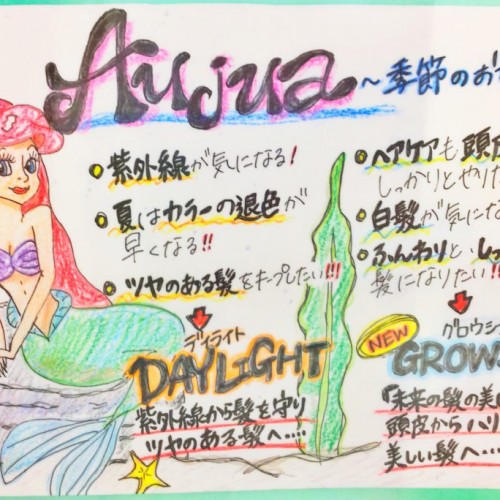 Aujua
~季節のお
紫外線が気になる!
夏はカラーの退色が
早くなる!!
ツヤのある髪をキープしたい!!!
デイライト
DAYLIGHT
紫外線から髪を守り
ツヤのある髪へ....
ヘアケアも頭皮
しっかりとやりた
白髪が気にな
ふんわりと、しっ
髪になりたい!!
グロウシ
NEW
GROW
『未来の髪の美し
頭皮からハリ
美しい髪へ...